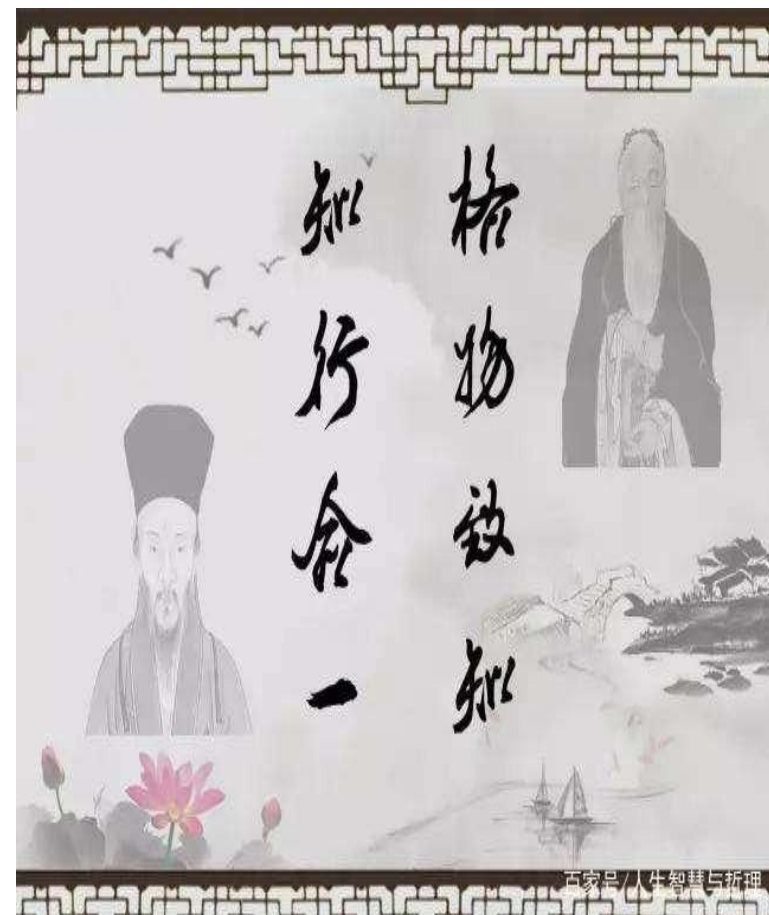 格物致知
知行合一
百家号/人生智慧与哲理